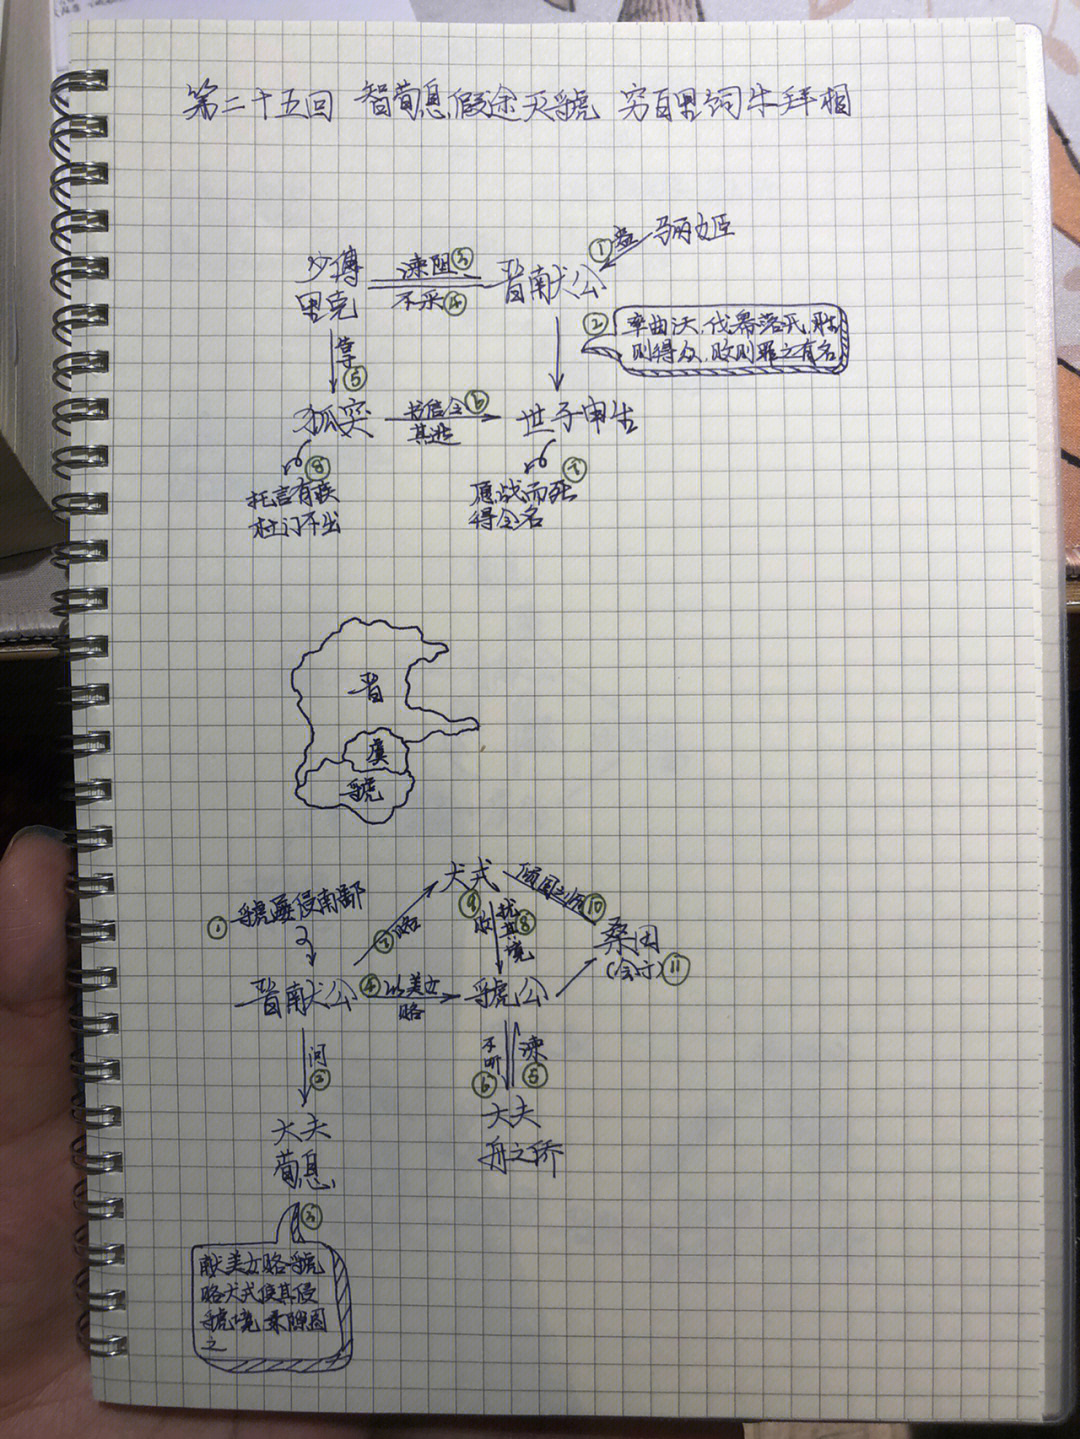 第二十五回 智荀息假途灭虢 穷百里饲牛拜相
① 骊姬
少傅
里克
谏阻③
不采④
晋献公
② 率曲沃伐皋落氏,胜
则得众,败则罪之有名
⑤
狐突
书信令⑥
其逃
世子申生
⑧
托言有疾
杜门不出
⑦
愿战而死
得令名
晋
虞
虢
① 虢屡侵南鄙
晋献公
③ 赂
犬戎
倾国之师⑩
桑田
⑪
⑨ 败
扰其境⑧
④ 以美女
赂
虢公
问
②
大夫
荀息
不听
⑥
谏
⑤
大夫
舟之侨
③
献美女赂虢
赂犬戎使其侵
虢境 乘隙图
之